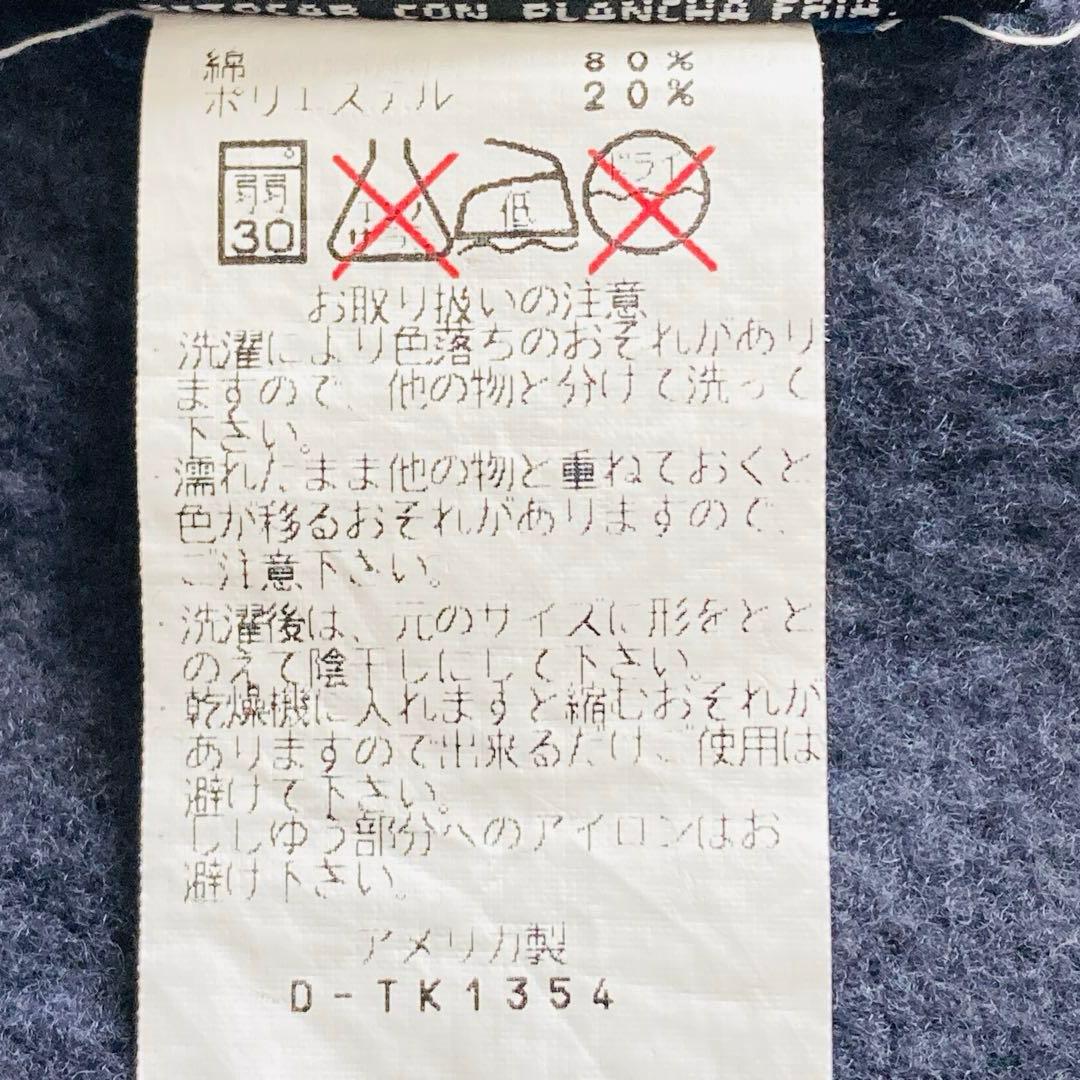 CON PLANCHA FRIA.
綿 80%
ポリエステル 20%
弱弱 低 ドライ
30 サラシ
お取り扱いの注意
洗濯により色落ちのおそれがあり
ますので、他の物と分けて洗って
下さい。
濡れたまま他の物と重ねておくと
色が移るおそれがありますので、
ご注意下さい。
洗濯後は、元のサイズに形をとと
のえて陰干しにして下さい。
乾燥機に入れますと縮むおそれが
ありますので出来るだけご使用は
避けて下さい。
ししゆう部分へのアイロンはお
避け下さい。
アメリカ製
D-TK1354